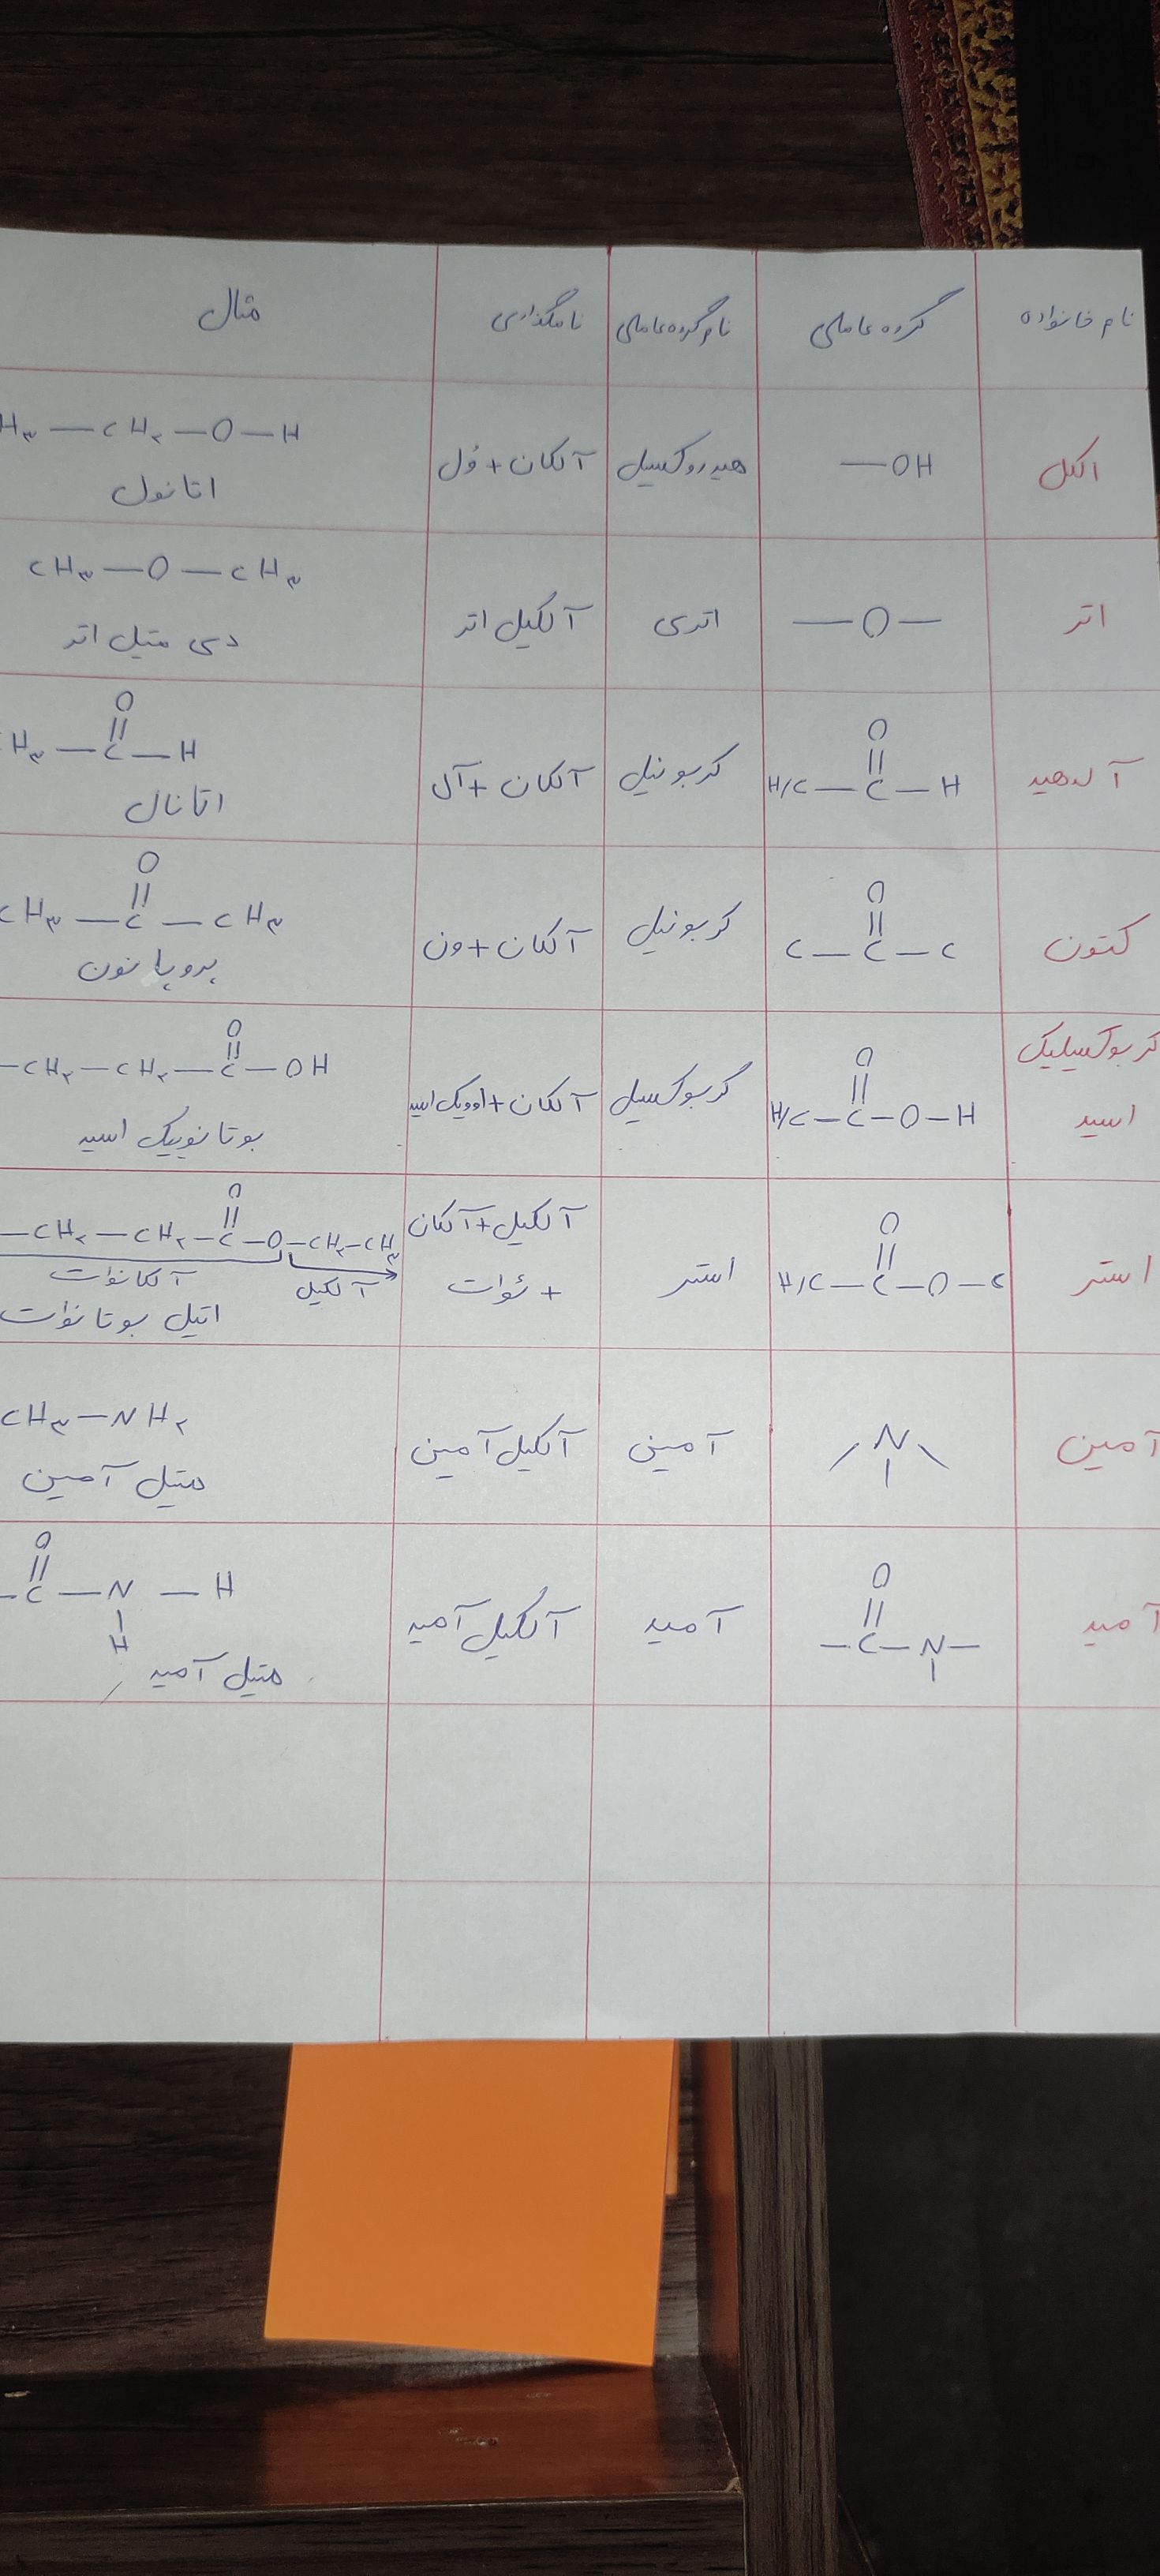 نام خانواده گروه عاملی نام گروه عاملی نامگذاری مثال
الکل —OH هیدروکسیل آلکان + ول H₃—CH₂—O—H
اتانول
اتر —O— اتری آلکیل اتر CH₃—O—CH₃
دی متیل اتر
آلدهید H/C—C(=O)—H کربونیل آلکان + آل H₃—C(=O)—H
اتانال
کتون C—C(=O)—C کربونیل آلکان + ون CH₃—C(=O)—CH₃
پروپانون
کربوکسیلیک
اسید H/C—C(=O)—O—H کربوکسیل آلکان + اوویک اسید —CH₂—CH₂—C(=O)—OH
بوتانوییک اسید
استر H/C—C(=O)—O—C استر آلکیل + آلکان
+ ئوات —CH₂—CH₂—C(=O)—O—CH₂—CH₃
آلکانوات آلکیل
اتیل بوتانوات
آمین —N— آمین آلکیل آمین CH₃—NH₂
متیل آمین
آمید —C(=O)—N— آمید آلکیل آمید —C(=O)—N—H
H
متیل آمید